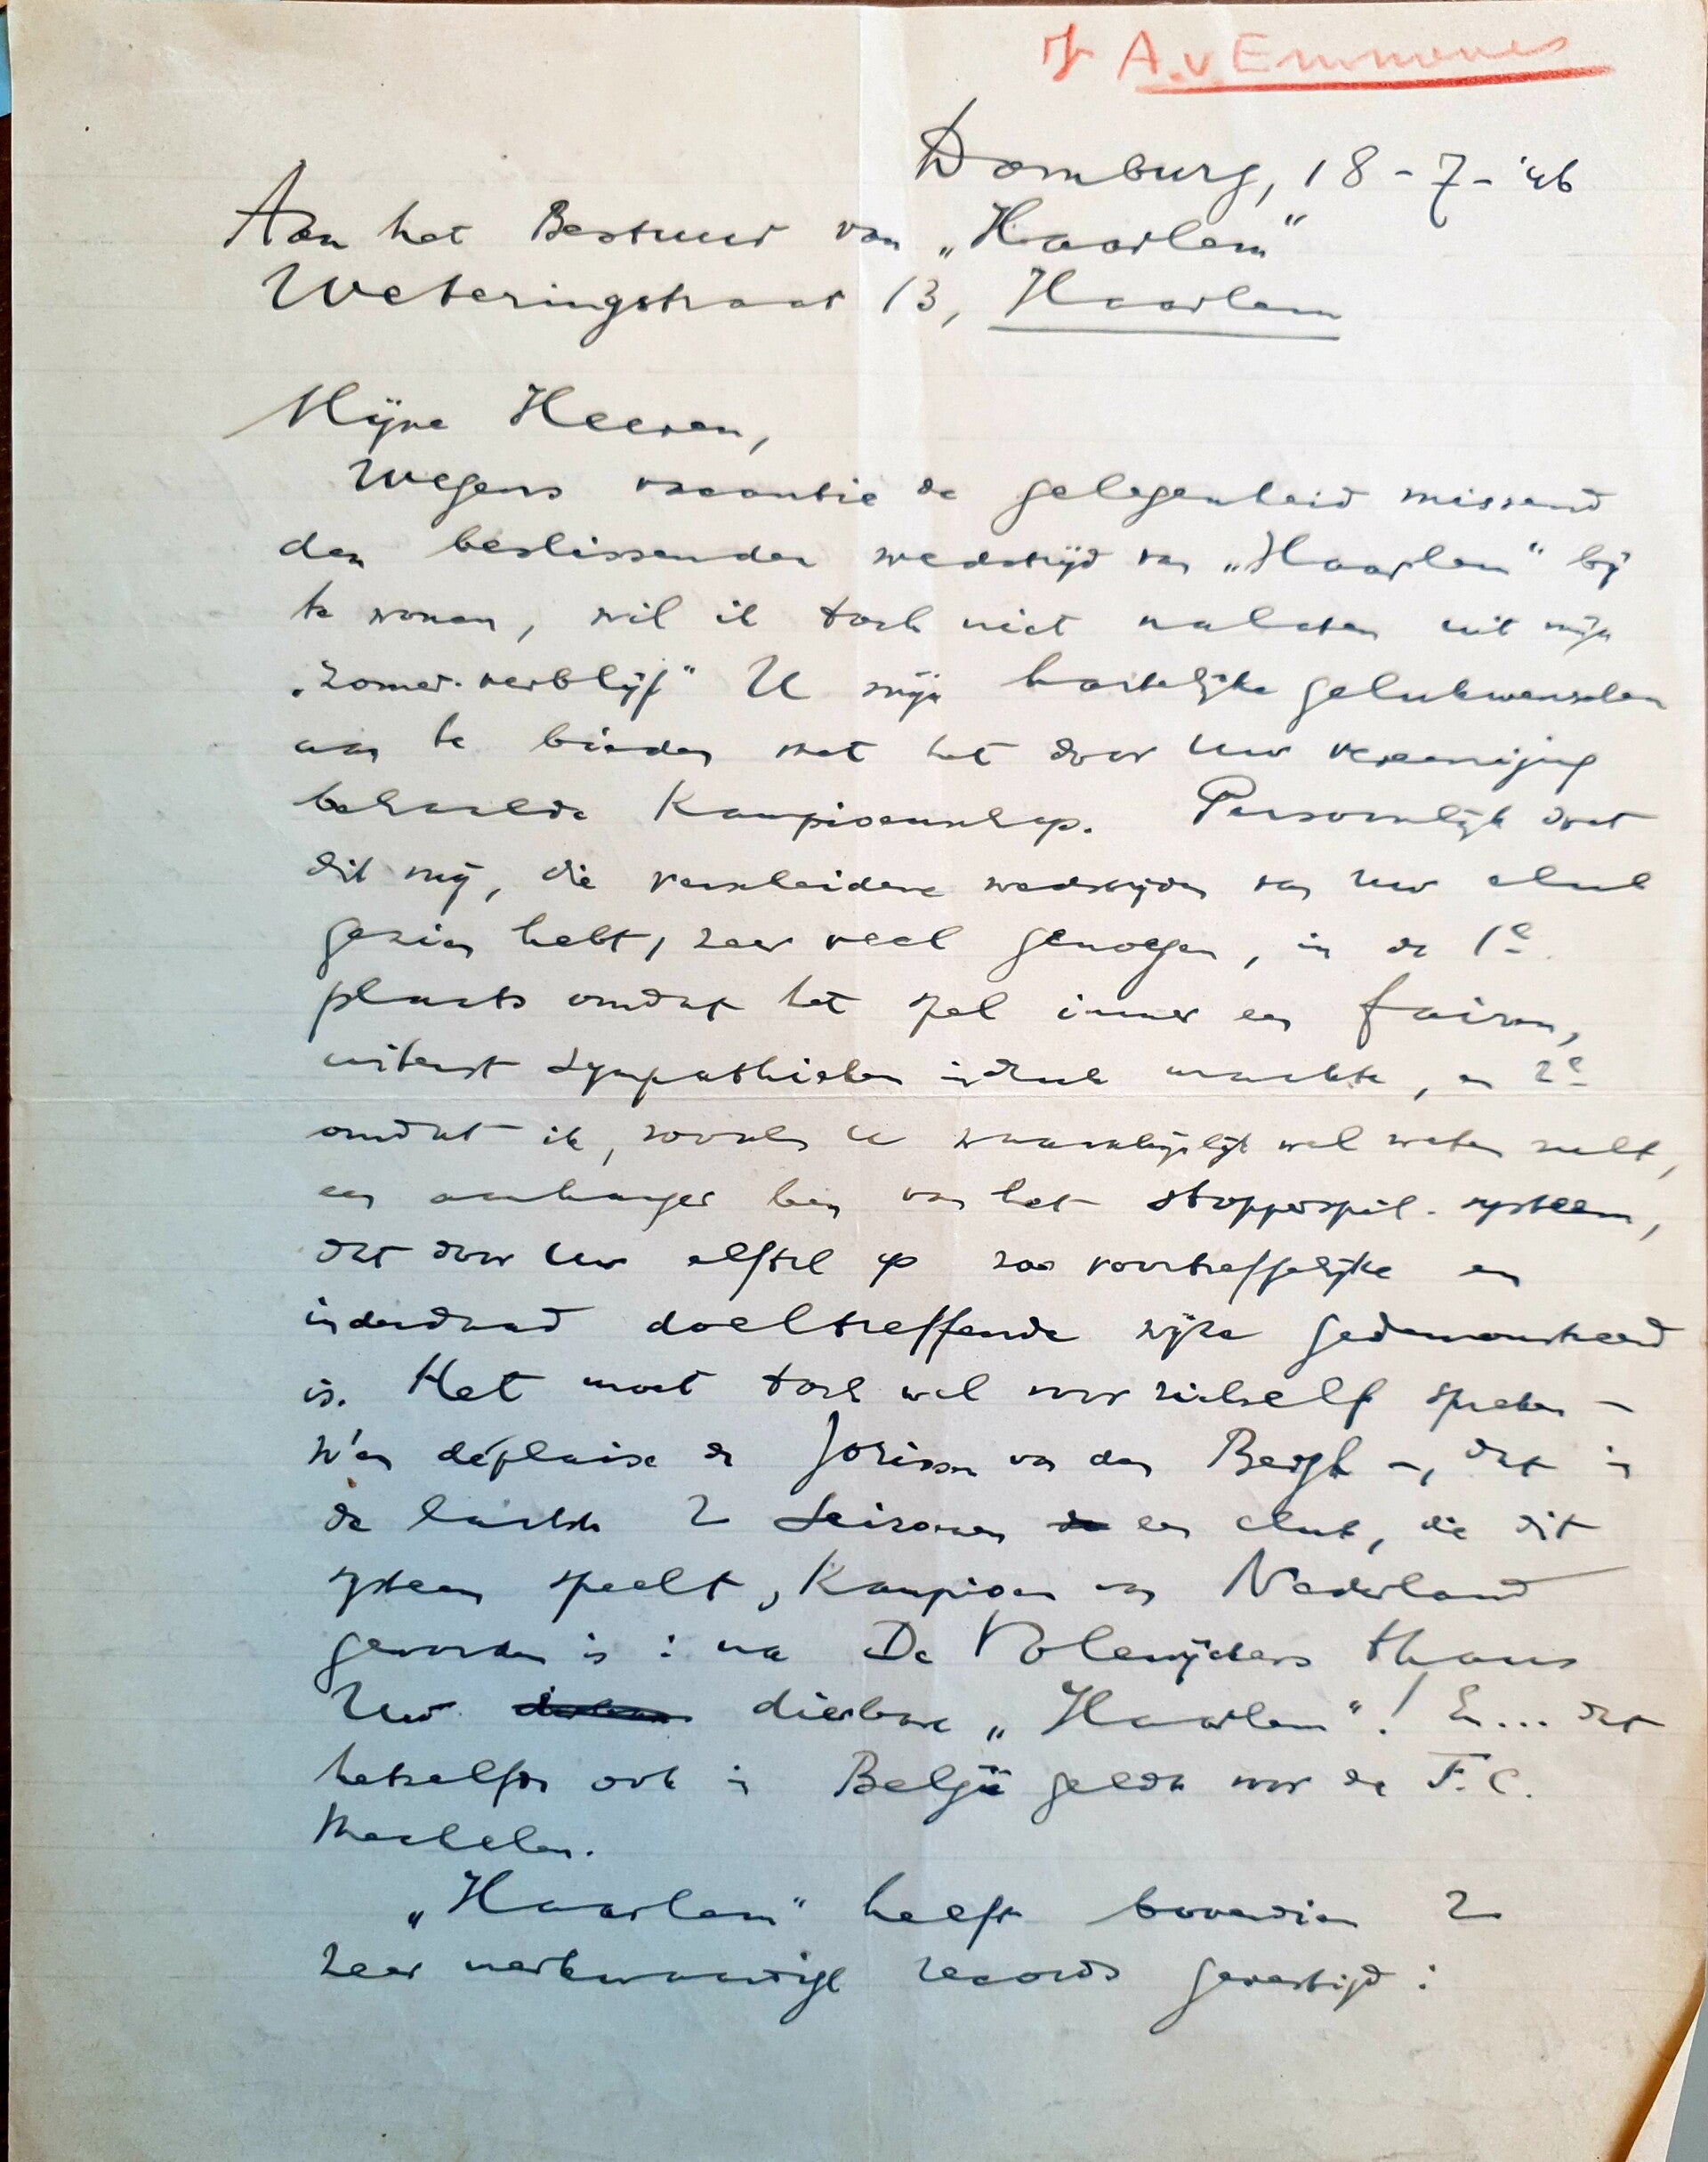 A. v. Emmenes
Domburg, 18-7-'46
Aan het Bestuur van „Haarlem"
Weteringstraat 13, Haarlem
Mijne Heeren,
Wegens vacantie de gelegenheid missend
den beslissenden wedstrijd van „Haarlem" bij
te wonen, wil ik toch niet nalaten uit mijn
„zomer-verblijf" U mijn hartelijke gelukwenschen
aan te bieden met het door Uw vereeniging
behaalde Kampioenschap. Persoonlijk doet
dit mij, die verscheidene wedstrijden van Uw club
gezien hebt, zeer veel genoegen, in de 1e
plaats omdat het spel immer een fairen,
uiterst sympathieken indruk maakte, en 2e
omdat ik, zooals U waarschijnlijk wel weten zult,
een aanhanger ben van het stopperspil-systeem,
dat door Uw elftal op zoo voortreffelijke en
inderdaad doeltreffende wijze gedemonstreerd
is. Het moet toch wel voor zichzelf spreken –
n'en déplaise de Joris van den Bergh –, dat in
de laatste 2 seizoenen een club, die dit
systeem speelt, Kampioen van Nederland
geworden is: na De Volewijckers thans
Uw dierbare „Haarlem"! En... dat
hetzelfde ook in België geldt voor de F.C.
Mechelen.
„Haarlem" heeft bovendien 2
zeer merkwaardige records gevestigd: